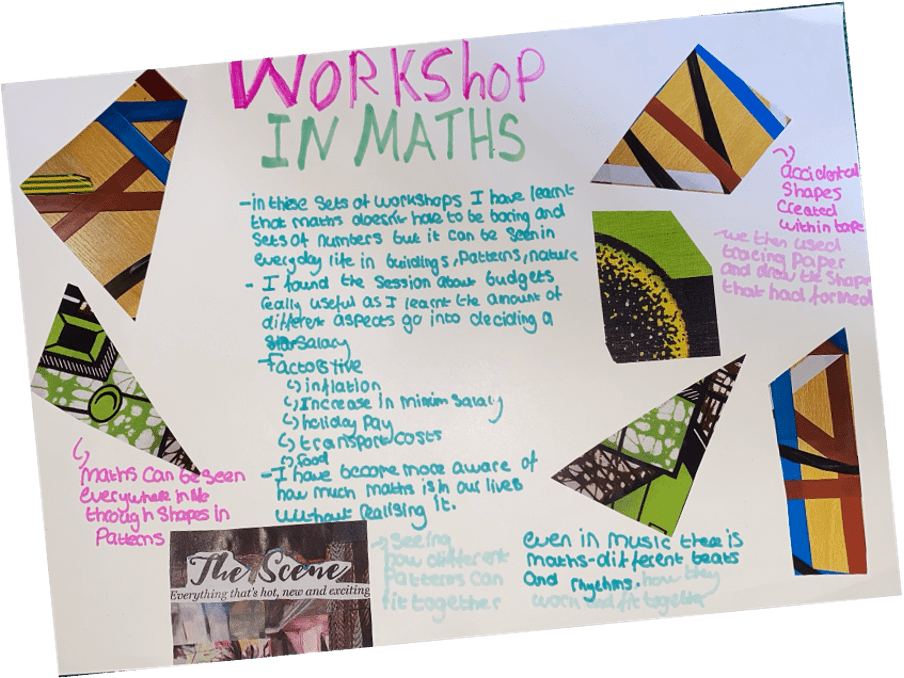 WORKSHOP
IN MATHS
-in these sets of workshops I have learnt
that maths doesn't have to be boring and
sets of numbers but it can be seen in
everyday life in buildings, patterns, nature
- I found the session about budgets
really useful as I learnt the amount of
different aspects go into deciding a
salary
-Factors like
↳inflation
↳Increase in minimum salary
↳holiday Pay
↳transport/costs
↳food
-I have become more aware of
how much maths is in our lives
without realising it.
↳
maths can be seen
everywhere in life
through shapes in
Patterns
accidental
shapes
created
within tape
we then used
tracing paper
and drew the shape
that had formed
The Scene
Everything that's hot, new and exciting
→ seeing
how different
Patterns can
fit together
even in music there is
maths-different beats
and rhythms. how they
work and fit together